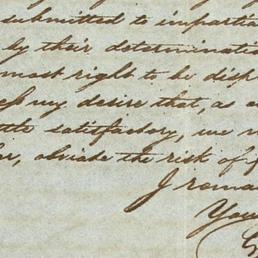 submitted to impartia
by their determinatio
most right to be disp
my desire that, as a
satisfactory, we
obviate the risk of
I remai
You